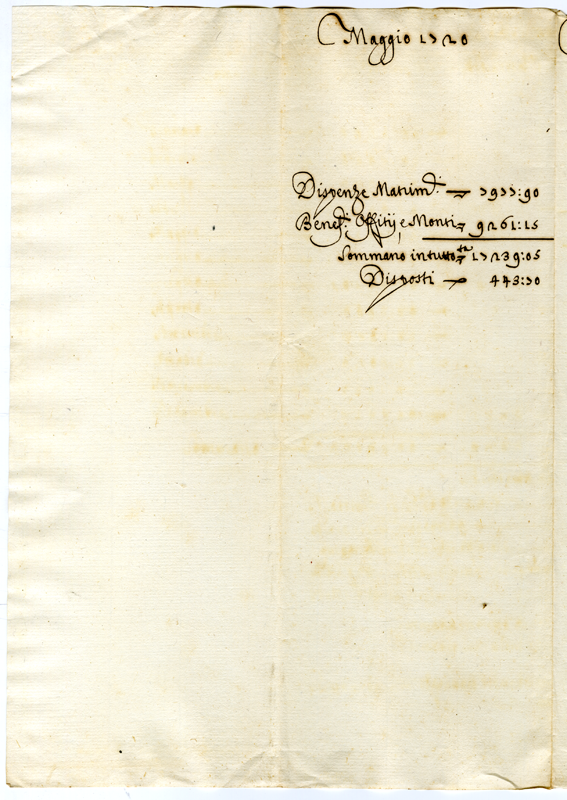 Maggio 1720
Dispenze Matrim: = 7977:90
Benef: Offitij, e Monti = 9261:15
Sommano in tutto 17239:05
Disposti = 443:70